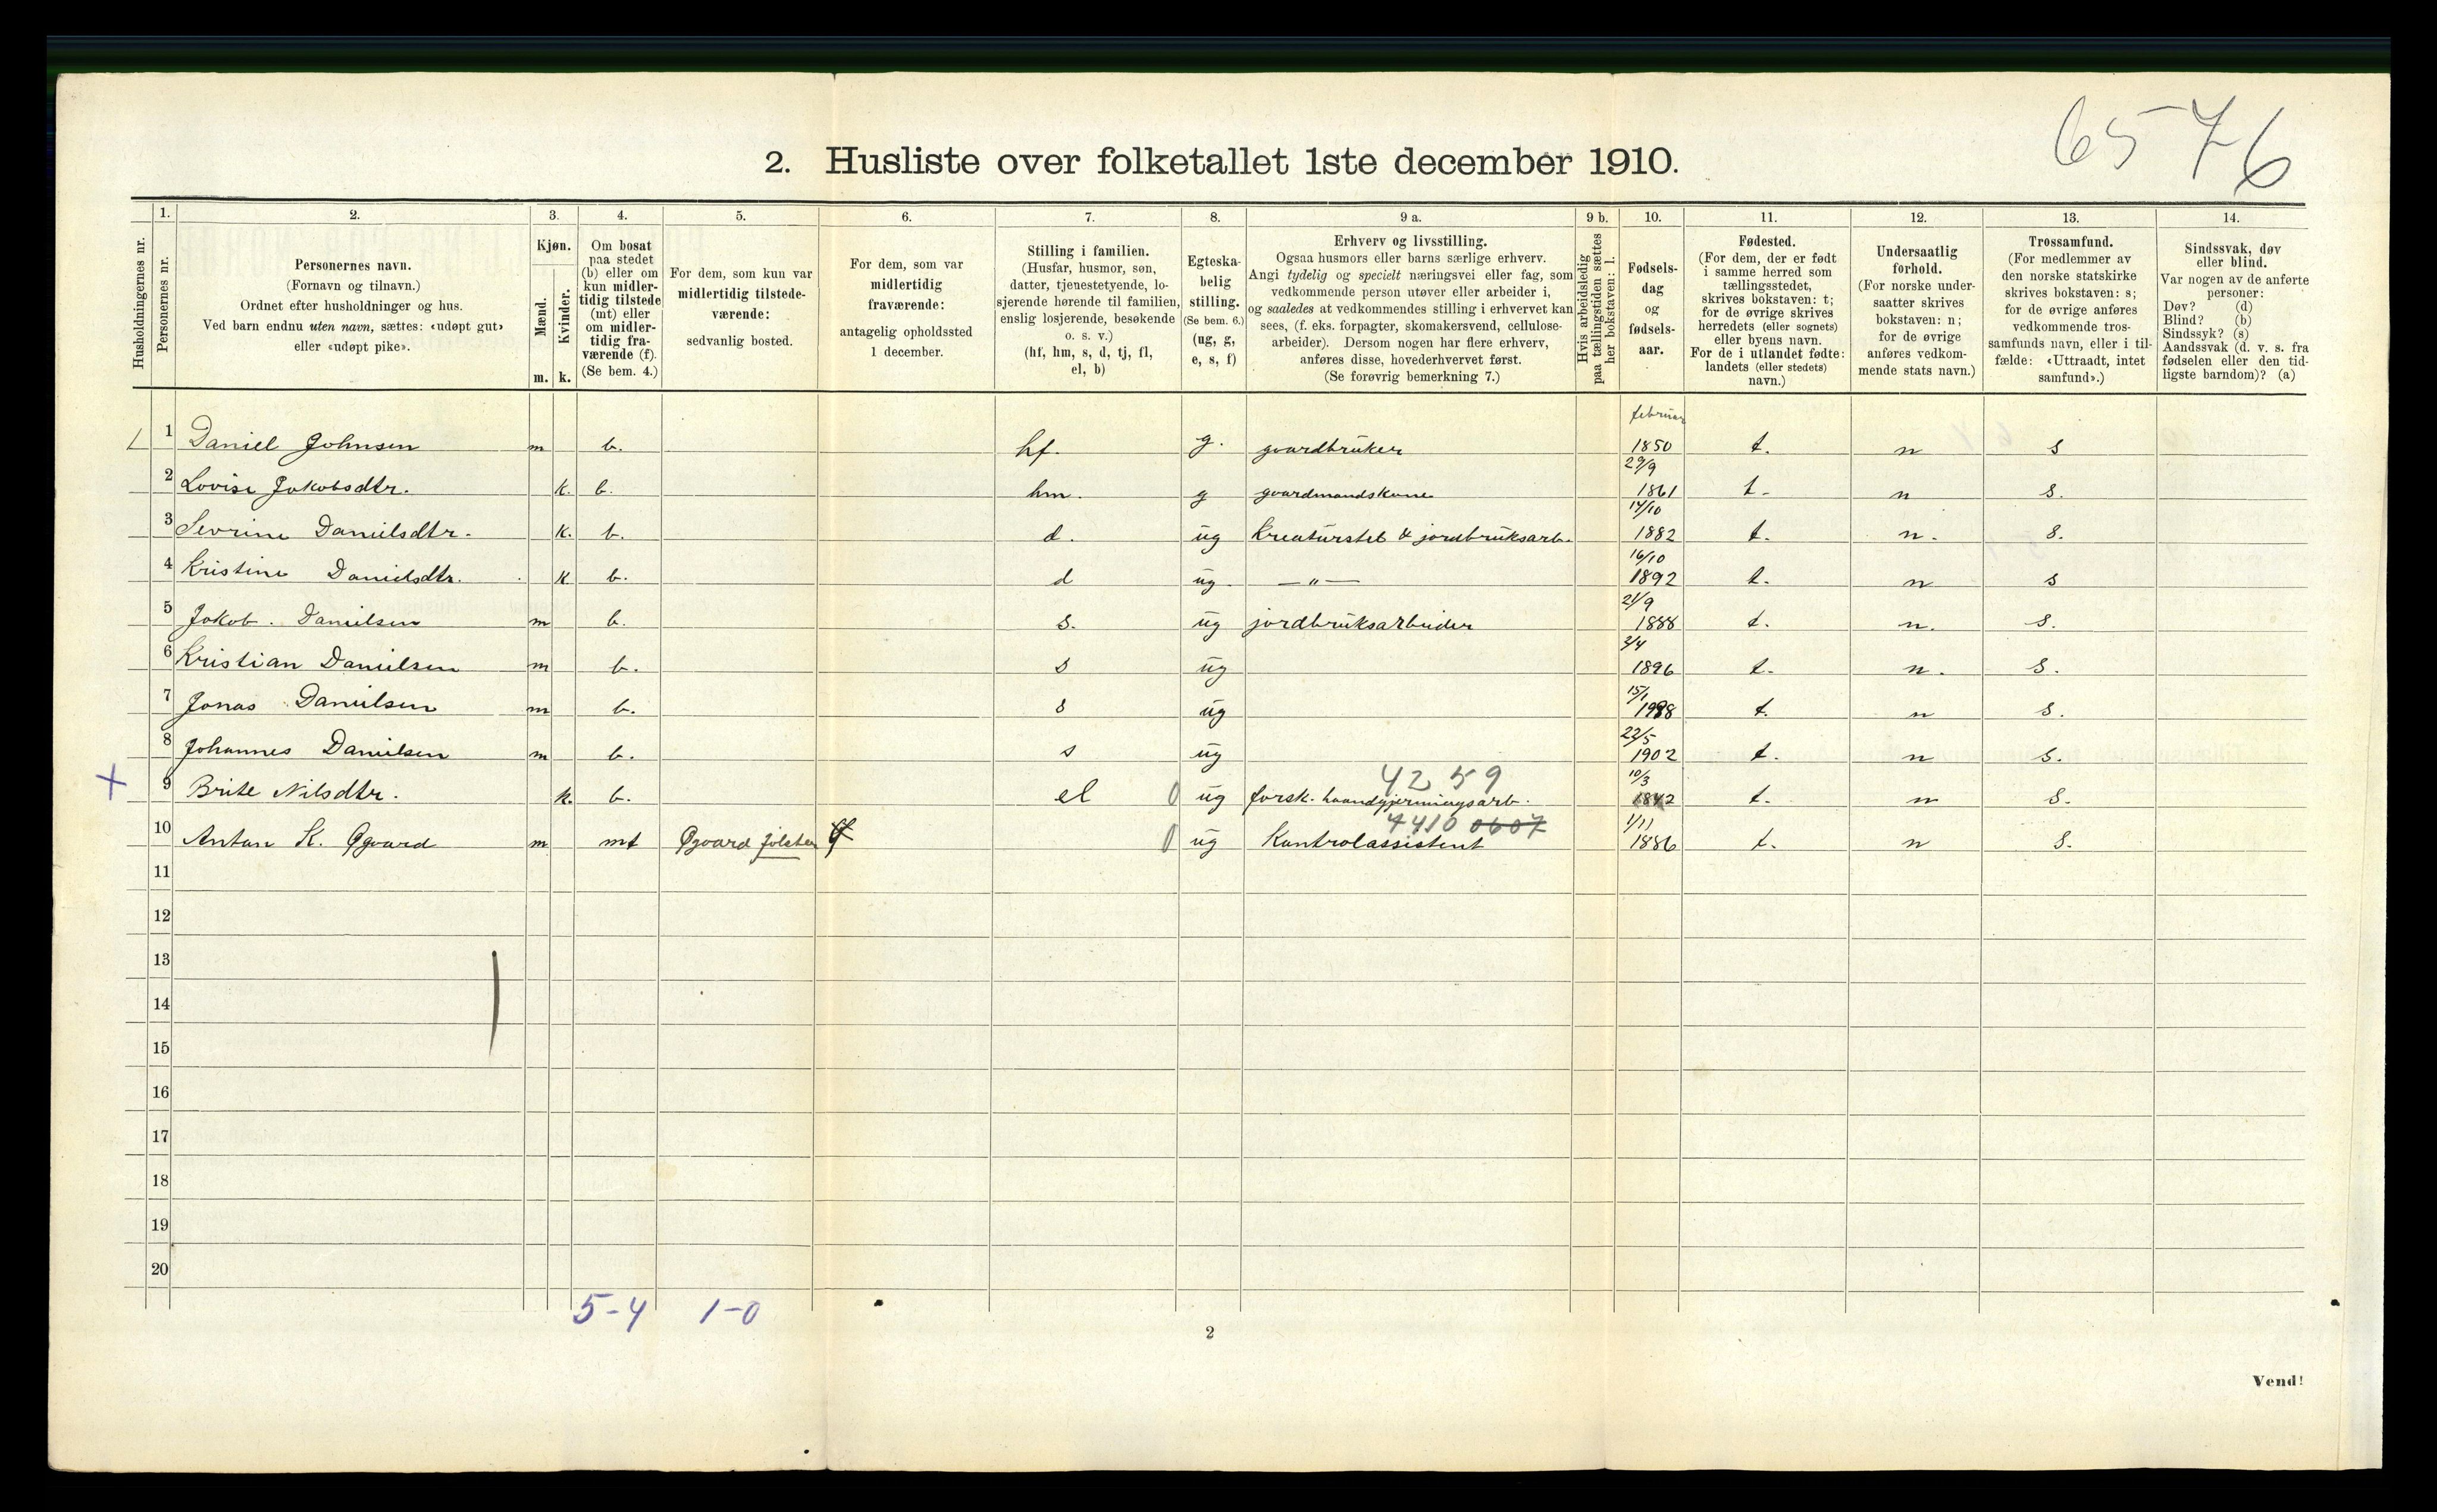 6576
2. Husliste over folketallet 1ste december 1910.
1. 2. 3. 4. 5. 6. 7. 8. 9 a. 9 b. 10. 11. 12. 13. 14.
Husholdningernes nr.
Personernes nr.
Personernes navn.
(Fornavn og tilnavn.)
Ordnet efter husholdninger og hus.
Ved barn endnu uten navn, sættes: «udøpt gut»
eller «udøpt pike».
Kjøn.
Mænd.
Kvinder.
m. k.
Om bosat
paa stedet
(b) eller om
kun midler-
tidig tilstede
(mt) eller
om midler-
tidig fra-
værende (f).
(Se bem. 4.)
For dem, som kun var
midlertidig tilstede-
værende:
sedvanlig bosted.
For dem, som var
midlertidig
fraværende:
antagelig opholdssted
1 december.
Stilling i familien.
(Husfar, husmor, søn,
datter, tjenestetyende, lo-
sjerende hørende til familien,
enslig losjerende, besøkende
o. s. v.)
(hf, hm, s, d, tj, fl,
el, b)
Egteska-
belig
stilling.
(Se bem. 6.)
(ug, g,
e, s, f)
Erhverv og livsstilling.
Ogsaa husmors eller barns særlige erhverv.
Angi tydelig og specielt næringsvei eller fag, som
vedkommende person utøver eller arbeider i,
og saaledes at vedkommendes stilling i erhvervet kan
sees, (f. eks. forpagter, skomakersvend, cellulose-
arbeider). Dersom nogen har flere erhverv,
anføres disse, hovederhvervet først.
(Se forøvrig bemerkning 7.)
Hvis arbeidsledig
paa tællingstiden sættes
her bokstaven: l.
Fødsels-
dag
og
fødsels-
aar.
Fødested.
(For dem, der er født
i samme herred som
tællingsstedet,
skrives bokstaven: t;
for de øvrige skrives
herredets (eller sognets)
eller byens navn.
For de i utlandet fødte:
landets (eller stedets)
navn.)
Undersaatlig
forhold.
(For norske under-
saatter skrives
bokstaven: n;
for de øvrige
anføres vedkom-
mende stats navn.)
Trossamfund.
(For medlemmer av
den norske statskirke
skrives bokstaven: s;
for de øvrige anføres
vedkommende tros-
samfunds navn, eller i til-
fælde: «Uttraadt, intet
samfund».)
Sindssvak, døv
eller blind.
Var nogen av de anførte
personer:
Døv? (d)
Blind? (b)
Sindssyk? (s)
Aandssvak (d. v. s. fra
fødselen eller den tid-
ligste barndom)? (a)
februar
1 Daniel Johnsen m b. hf. g. gaardbruker 1850 t. n s
29/9
2 Lovise Jakobsdtr. k. b. hm. g gaardmandskone 1861 t. n s.
14/10
3 Sevrine Danielsdtr. k. b. d. ug Kreaturstel & jordbruksarb. 1882 t. n. s.
16/10
4 Kristine Danielsdtr. k b. d ug. —„— 1892 t. n s
21/9
5 Jakob. Danielsen m b. s. ug jordbruksarbeider 1888 t. n. s.
3/4
6 Kristian Danielsen m b. s ug 1896 t. n. s.
15/1
7 Jonas Danielsen m b. s ug t. n s.
22/5
8 Johannes Danielsen m b. s ug 1902 t. n s.
42 59
10/3
+ 9 Brite Nilsdtr. k. b. el 0 ug forsk. haandgjerningsarb. 1842 t. n s.
4410 0607
1/11
10 Anton K. Øgaard m mt Øgaard Jølster 0 ug Kontrolassistent 1886 t. n s.
11
12
13
14
15
16
17
18
19
20
5-4 1-0
2
Vend!